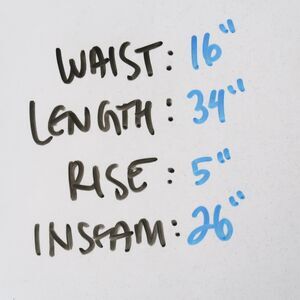 WAIST: 16"
LENGTH: 34"
RISE: 5"
INSEAM: 26"